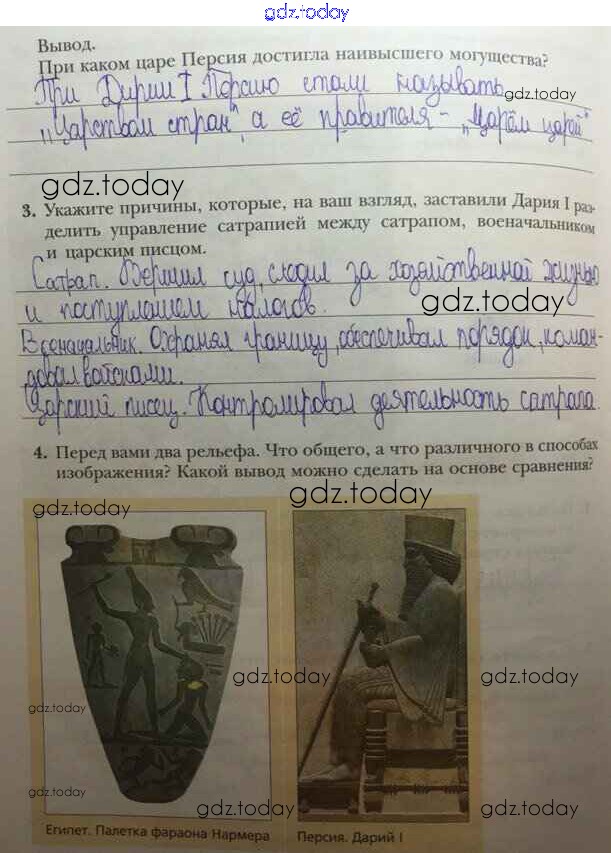 gdz.today
Вывод.
При каком царе Персия достигла наивысшего могущества?
При Дарии I Персию стали называть
gdz.today
"Царством стран", а её правителя - "Царём царей"
gdz.today
3. Укажите причины, которые, на ваш взгляд, заставили Дария I раз-
делить управление сатрапией между сатрапом, военачальником
и царским писцом.
Сатрап. Вершил суд, следил за хозяйственной жизнью
и поступлением налогов.
gdz.today
Военачальник. Охранял границу, обеспечивал порядок, коман-
довал войсками.
Царский писец. Контролировал деятельность сатрапа.
4. Перед вами два рельефа. Что общего, а что различного в способах
изображения? Какой вывод можно сделать на основе сравнения?
gdz.today
gdz.today
gdz.today
gdz.today
gdz.today
gdz.today
gdz.today
gdz.today
gdz.today
Египет. Палетка фараона Нармера
Персия. Дарий I